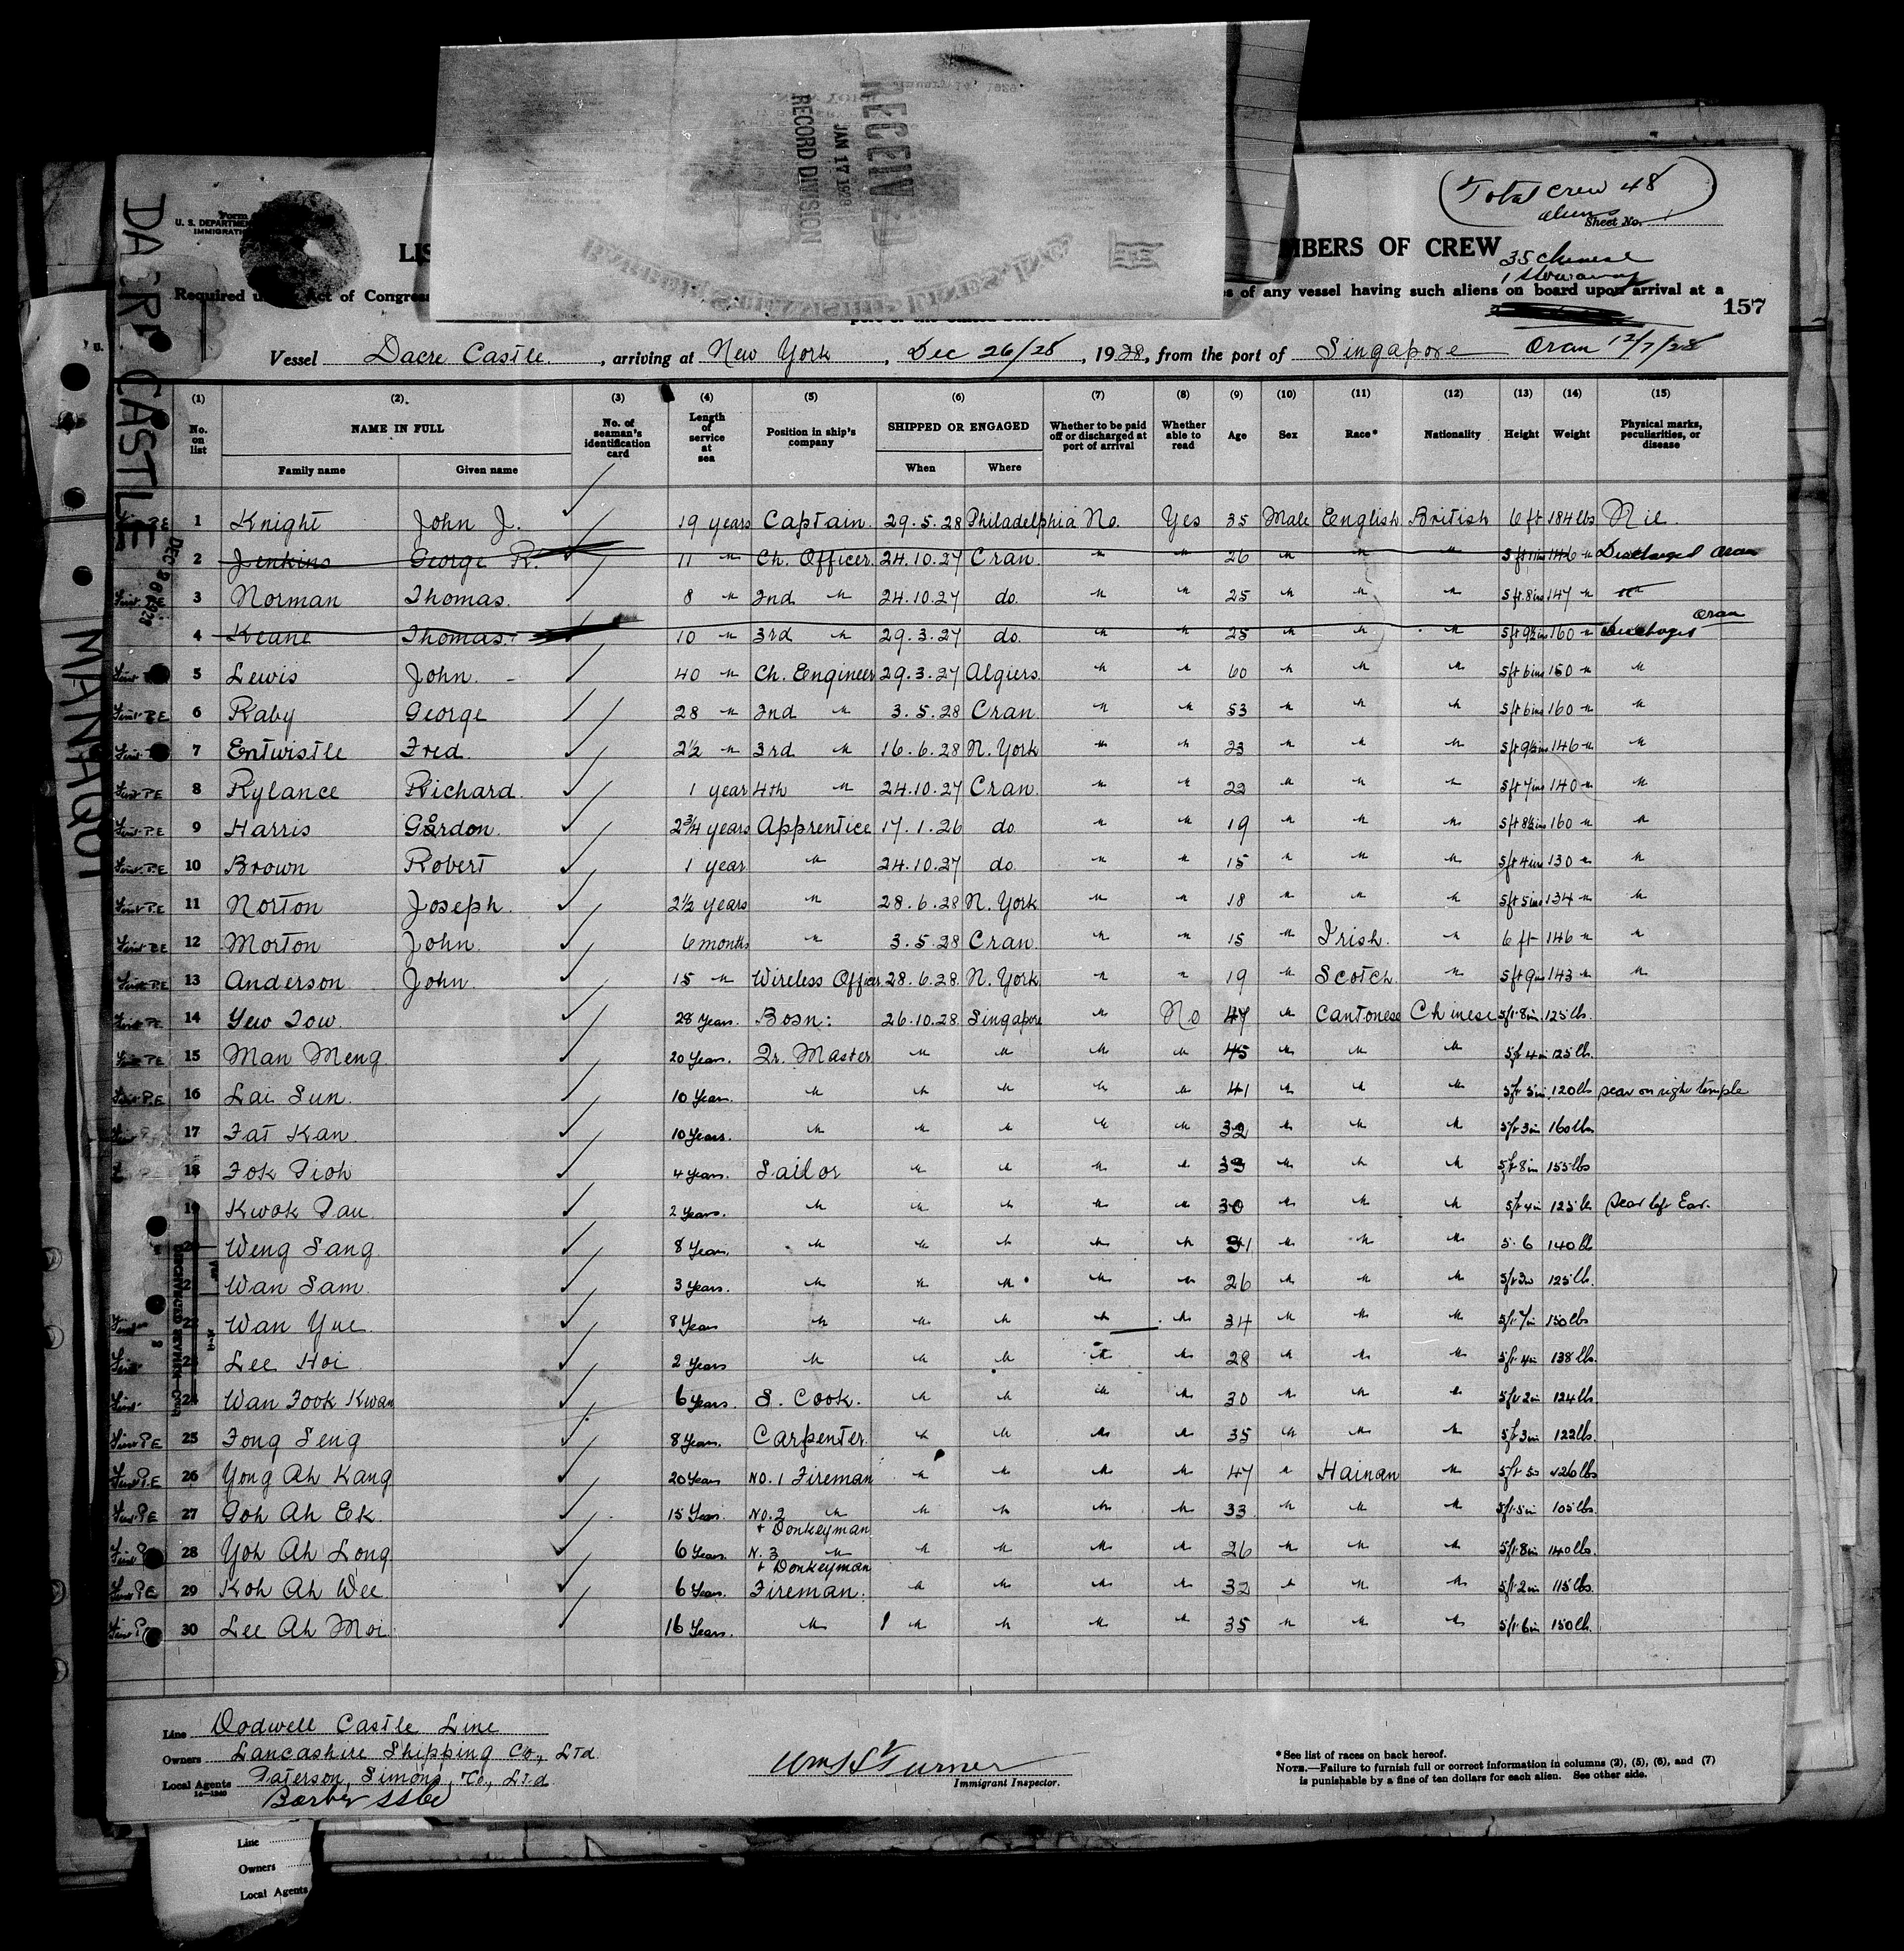 RECEIV
JAN 17 1929
RECORD DIVISION
BARBER STEAMSHIP LINES INC
Total crew 48
aliens
Sheet No. 1
Form
U. S. DEPARTMEN
IMMIGRATI
LIS MBERS OF CREW
35 Chinese
1 Stowaway
Required u Act of Congres s of any vessel having such aliens on board upon arrival at a
157
DACRE CASTLE
MANHQOT
Vessel Dacre Castle, arriving at New York, Dec 26/28, 1928, from the port of Singapore Oran 12/7/28
(1) (2) (3) (4) (5) (6) (7) (8) (9) (10) (11) (12) (13) (14) (15)
No. on list NAME IN FULL No. of seaman's identification card Length of service at sea Position in ship's company SHIPPED OR ENGAGED Whether to be paid off or discharged at port of arrival Whether able to read Age Sex Race* Nationality Height Weight Physical marks, peculiarities, or disease
Family name Given name When Where
1 Knight John J. 19 years Captain. 29.5.28 Philadelphia No. Yes 35 Male English British 6 ft 184 lbs Nil
2 Jenkins George R. 11 " Ch. Officer. 24.10.27 Cran " " 26 " " " 5 ft 11 ins 146 " Discharged Oran
3 Norman Thomas. 8 " 2nd " 24.10.27 do. " " 25 " " " 5 ft. 8 ins 147 " "
4 Keane Thomas. 10 " 3rd " 29.3.27 do. " " 25 " " " 5 ft 9½ ins 160 " Discharged Oran
5 Lewis John. 40 " Ch. Engineer 29.3.27 Algiers. " " 60 " " " 5 ft 6 ins 150 " "
6 Raby George 28 " 2nd " 3.5.28 Cran. " " 53 " " " 5 ft 6 ins 160 " "
7 Entwistle Fred. 2½ " 3rd " 16.6.28 N. York " " 23 " " " 5 ft 9½ ins 146 " "
8 Rylance Richard. 1 year 4th " 24.10.27 Cran. " " 22 " " " 5 ft 7 ins 140 " "
9 Harris Gordon. 2¾ years Apprentice 17.1.26 do " " 19 " " " 5 ft 8½ ins 160 " "
10 Brown Robert 1 year " 24.10.27 do. " " 15 " " " 5 ft 4 ins 130 " "
11 Norton Joseph. 2½ years " 28.6.28 N. York " " 18 " " " 5 ft 5 ins 134 " "
12 Morton John. 6 months " 3.5.28 Cran. " " 15 " Irish. " 6 ft 146 " "
13 Anderson John. 15 " Wireless Officer. 28.6.28. N. York " " 19 " Scotch. " 5 ft 9 ins 143 " "
14 Yew Tow. 28 Years. Bosn: 26.10.28 Singapore " No 47 " Cantonese Chinese 5 ft 8 in 125 lbs.
15 Man Meng. 20 Years. Qr. Master " " " " 45 " " " 5 ft 4 in 125 lb.
16 Lai Sun. 10 Years. " " " " " 41 " " " 5 ft 5 in 120 lbs scar on right temple
17 Fat Kan. 10 Years. " " " " " 32 " " " 5 ft 3 in 160 lbs
18 Fok Tioh 4 Years. Sailor " " " " 33 " " " 5 ft 8 in 155 lbs
19 Kwok Pau. 2 Years. " " " " " 30 " " " 5 ft 4 in 125 lb scar left Ear.
Weng Sang. 8 Years. " " " " " 31 " " " 5.6 140 lb
Wan Sam. 3 Years. " " " " " 26 " " " 5 ft 3 in 125 lb.
Wan Yue. 8 Years " " " " " 34 " " " 5 ft 7 in 150 lbs
Lee Hoi 2 Years " " " " " 28 " " " 5 ft 4 in 138 lbs.
24 Wan Fook Kwan 6 Years. S. Cook. " " " " 30 " " " 5 ft 2 in 124 lbs
25 Fong Seng 8 Years. Carpenter. " " " " 35 " " " 5 ft 3 in 122 lbs.
26 Yong Ah Kang 20 Years No. 1 Fireman " " " " 47 " Hainan " 5 ft 5 in 126 lbs
27 Goh Ah Ek. 15 Years. No. 2 " + Donkeyman " " " " 33 " " " 5 ft 5 in 105 lbs.
28 Yoh Ah Long 6 Years. N. 3 " + Donkeyman " " " " 26 " " " 5 ft 8 in 140 lbs.
29 Koh Ah Wee 6 Years. Fireman. " " " " 32 " " " 5 ft 2 in 115 lbs.
30 Lee Ah Moi 16 Years. " " " " " 35 " " " 5 ft 6 in 150 lb.
Line Dodwell Castle Line
Owners Lancashire Shipping Co., Ltd.
Local Agents Paterson, Simons, & Co., Ltd
14—1240
Barber SS Co
Wm S Turner
Immigrant Inspector.
*See list of races on back hereof.
NOTE.—Failure to furnish full or correct information in columns (2), (5), (6), and (7)
is punishable by a fine of ten dollars for each alien. See other side.
Line
Owners
Local Agents